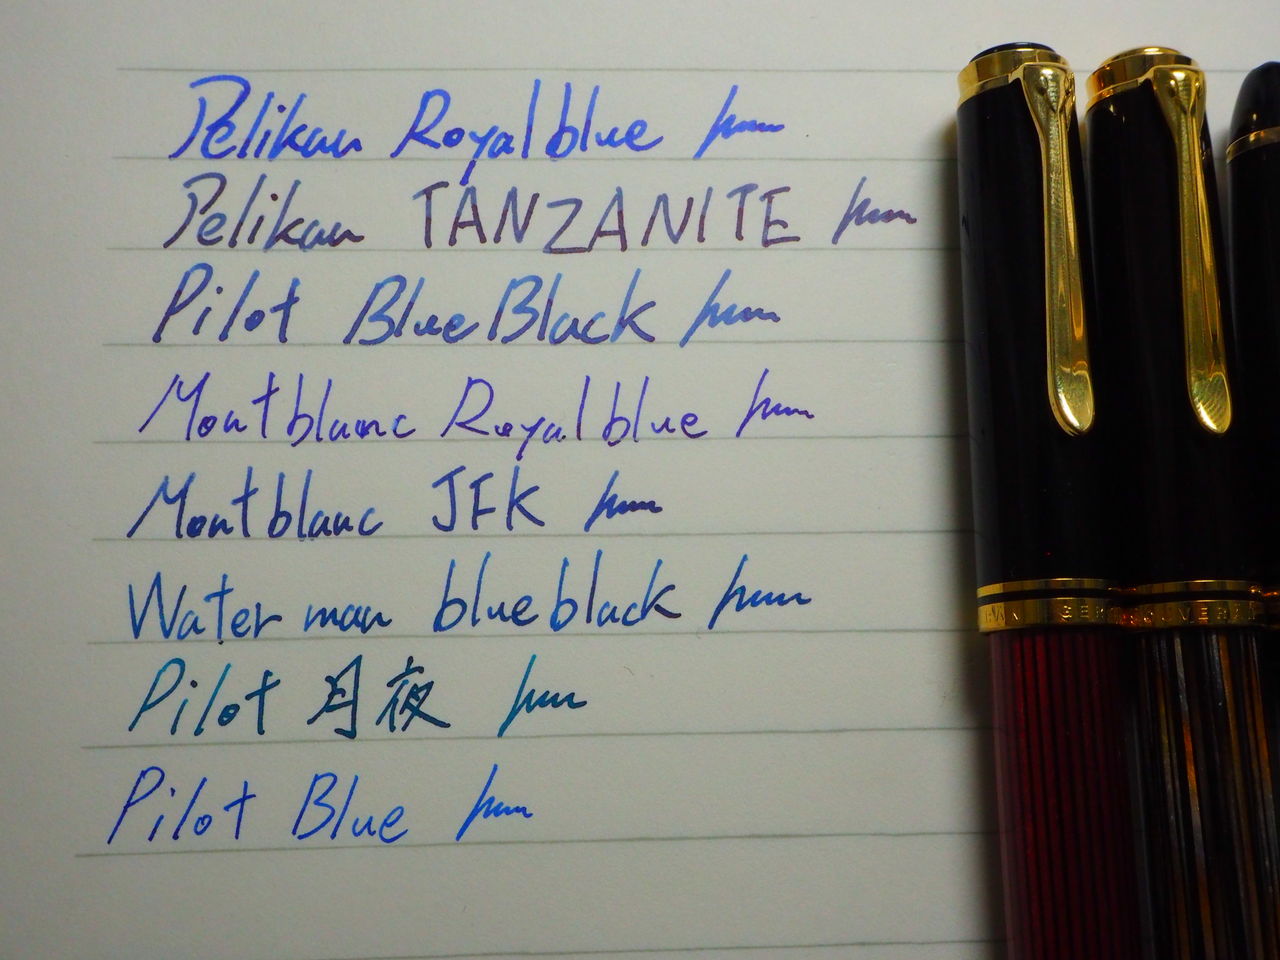 Pelikan Royalblue
Pelikan TANZANITE
Pilot BlueBlack
Montblanc Royalblue
Montblanc JFK
Waterman blueblack
Pilot 月夜
Pilot Blue